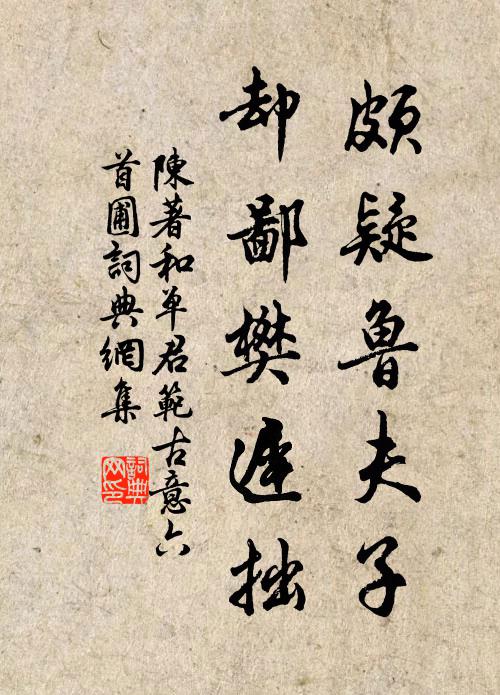 頗疑魯夫子
却鄙樊遲拙
陳著和单君範古意六
首圃詞典網集
詞典
网印